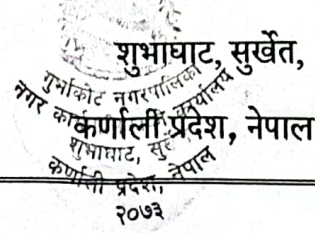 शुभाघाट, सुर्खेत,
कर्णाली प्रदेश, नेपाल
गुर्भाकोट नगरपालिका
नगर कार्यपालिकाको कार्यालय
शुभाघाट, सुर्खेत
कर्णाली प्रदेश, नेपाल
२०७३